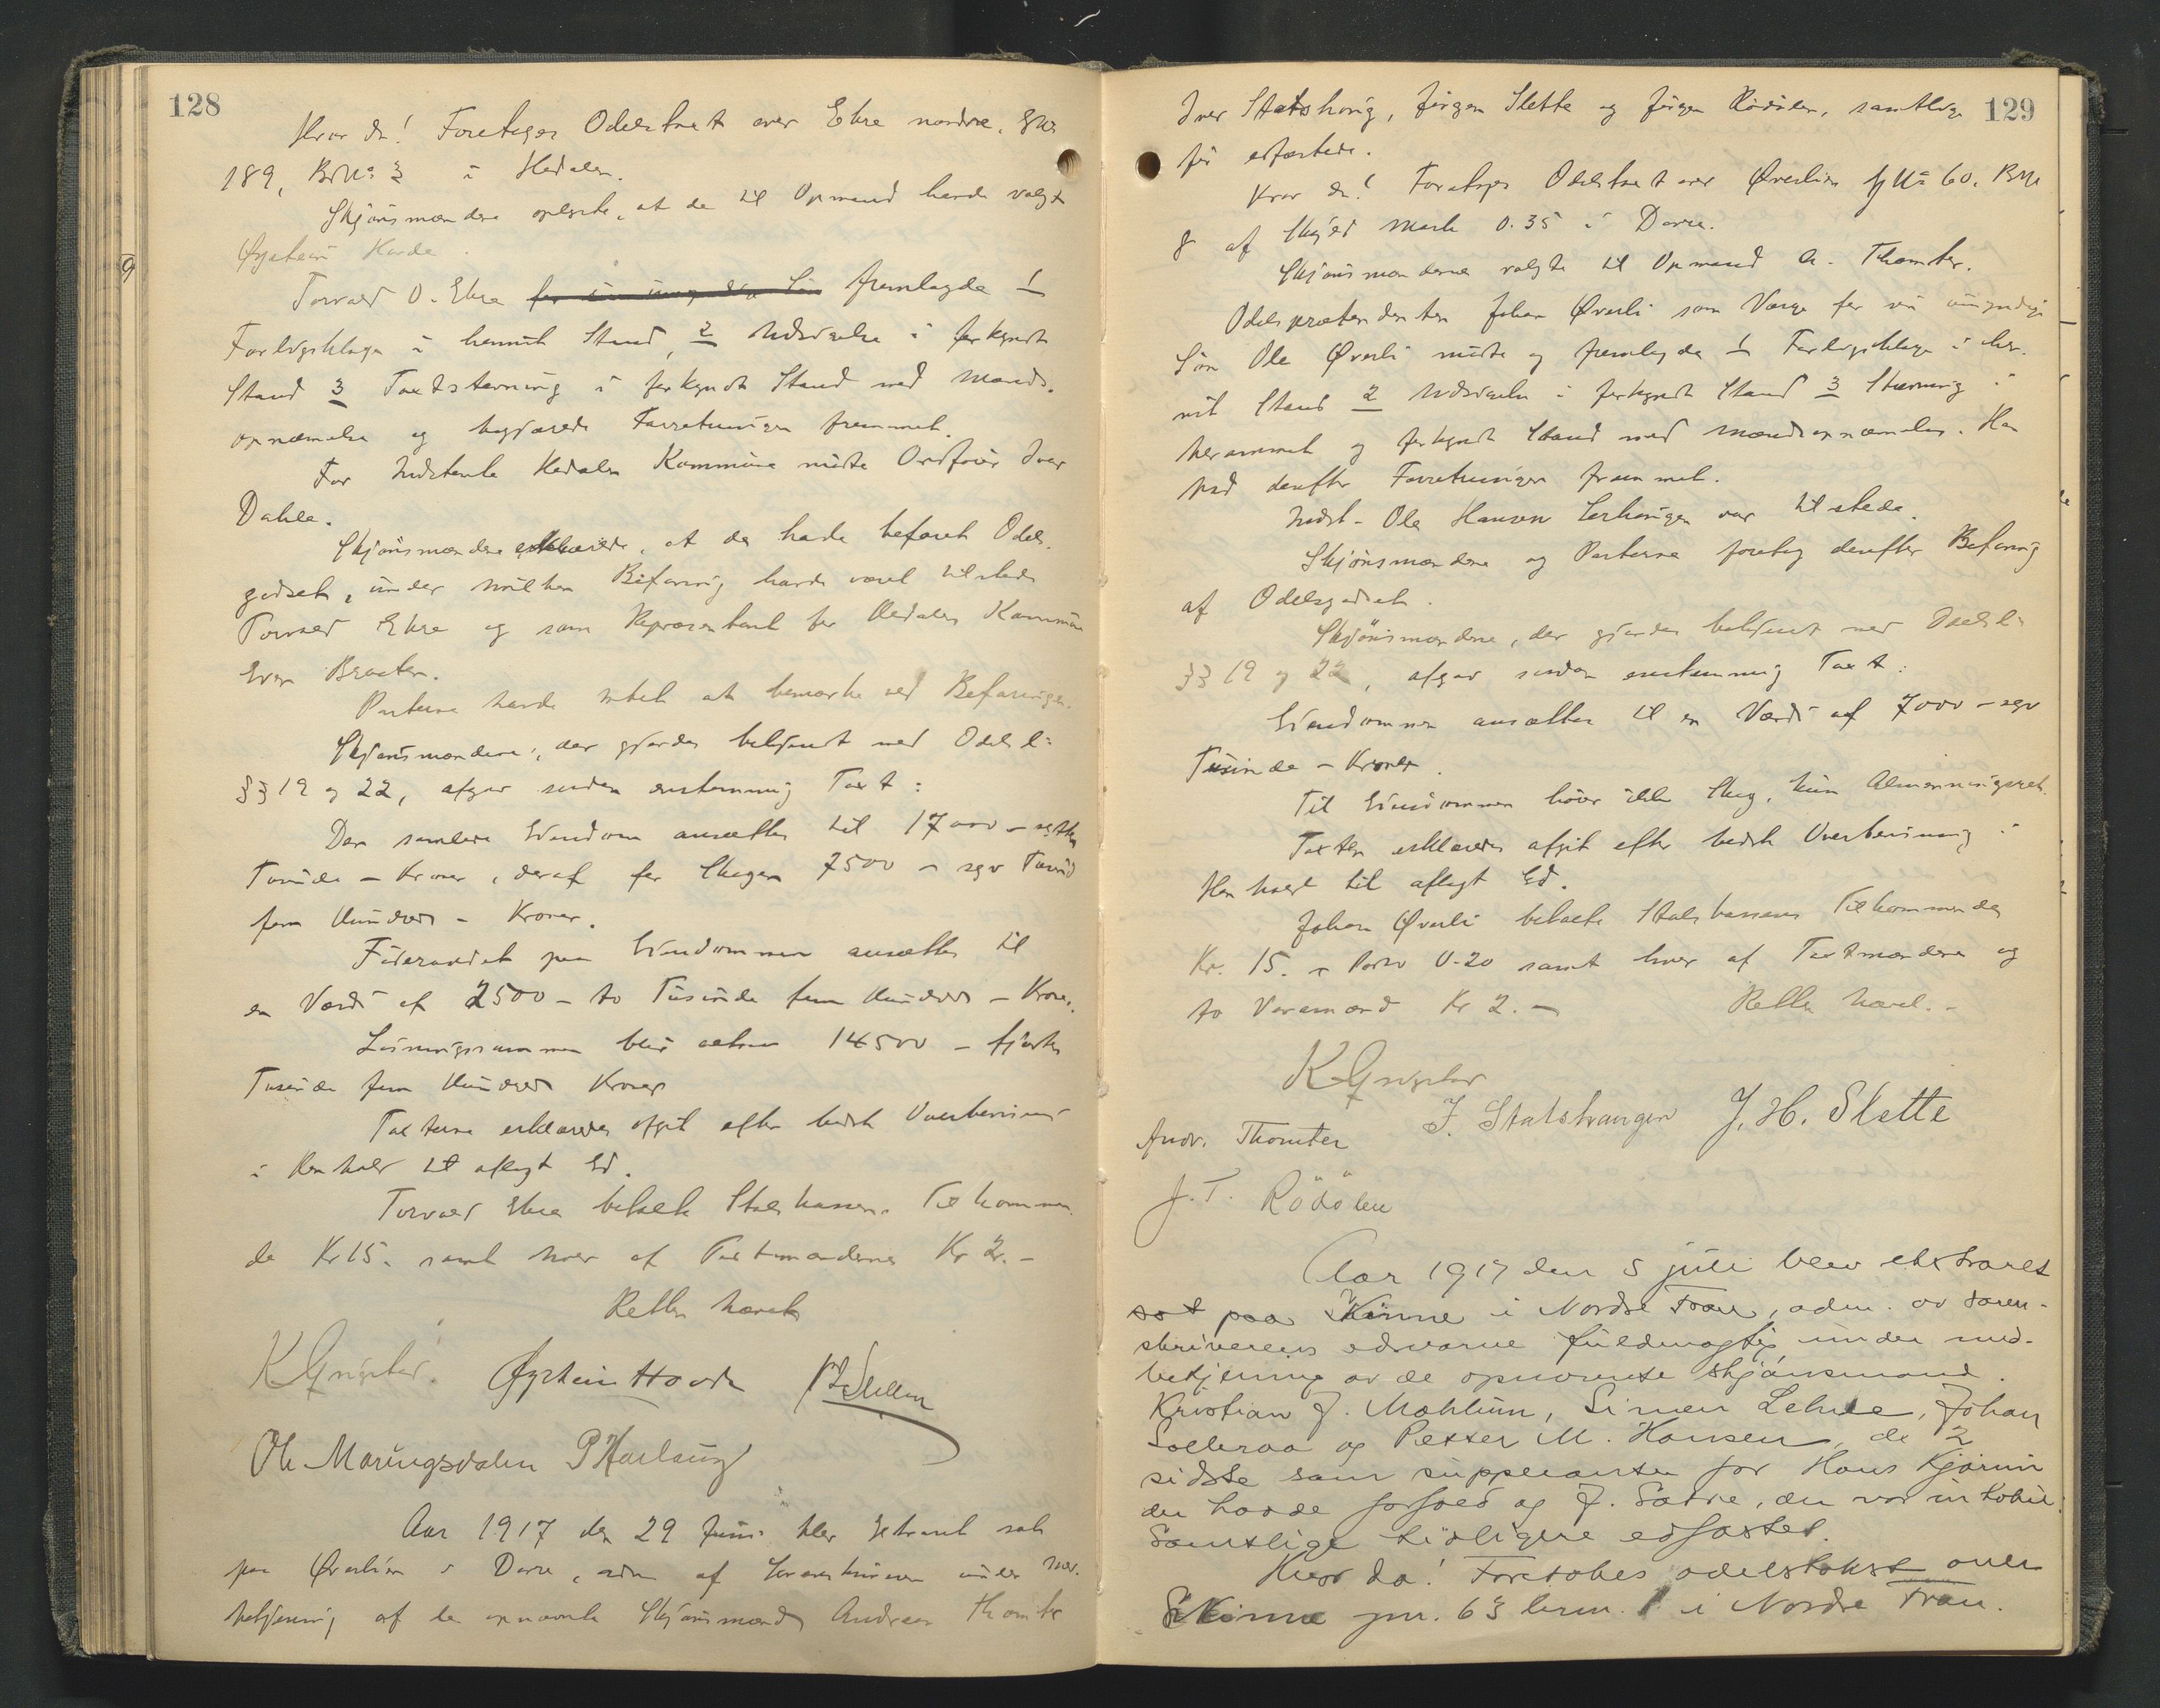 128
Hvor da! Foretages Odelstaxt over Ekre nordre, GNo
189, BrNo 3 i Hedalen.
Skjønsmændene oplyste, at de til Opmand havde valgt
Øystein Hovde.
Torvald O. Ekre fremlagde 1
Forligsklage i hennist Stand, 2 Udskrift i forkyndt
Stand 3 Taxtstævning i forkyndt Stand med Mænds-
opnævnelse og begjærede Forretningen fremmet.
For Indstevnte Hedalen Kommune mødte Ordfører Iver
Dahle.
Skjønsmændene erklærede, at de havde befaret Odels-
godset, under hvilken Befaring havde været tilstede
Torvald Ekre og som Repræsentant for Hedalen Kommune
Even Braaten.
Parterne havde intet at bemærke ved Befaringen.
Skjønsmændene, der gjordes bekjendt med Odelsl:
§§ 19 og 22, afgav sendan enstemmig Taxt:
Den samlede Eiendom ansættes til 17000 – sytten
Tusinde – Kroner, deraf for Skogen 7500 – syv Tusind
fem Hundrede – Kroner.
Føderaadet paa Eiendommen ansættes til
en Værdi af 2500 – to Tusinde fem Hundrede – Kroner.
Løsningssummen blir altsaa 14500 – fjorten
Tusinde fem Hundrede Kroner
Taxterne erklæredes afgit efter bedste Overbevisning
i Henhold til aflagt Ed.
Torvald Ekre betalte Statskassens Tilkommen-
de Kr 15. samt hver af Taxtmændene Kr 2. –
Retten hævet
Øystein Hovde
Ole Maringsdalen P Haulaug
Aar 1917 den 29 Juni blev Extraret sat
paa Øverlien i Dovre, adm af Sorenskriveren under Med-
betjening af de opnævnte Skjønsmænd Andreas Thomter
129
Iver Statshaug, Jørgen Slette og Jørgen Rödölen, samtlige
før edfæstede.
Hvor da! Foretages Odelstaxt over Øverlien GNo 60, BNo
8 af Skyld Mark 0.35 i Dovre.
Skjønsmændene valgte til Opmand A. Thomter.
Odelsprætendenten Johan Øverli som Værge for sin umyndige
Søn Ole Øverli mødte og fremlagde 1 Forligsklage i hen-
nist Stand 2 Udskrift i forkyndt Stand 3 Stævning i
herammet og forkyndt Stand med Mændsopnævnelse. Han
bad derefter Forretningen fremmet.
Indst. Ole Hansen var tilstede.
Skjønsmændene og Parterne foretog derefter Befaring
af Odelsgodset.
Skjønsmændene, der gjordes bekjendt med Odelsl:
§§ 19 og 22, afgav sendan enstemmig Taxt:
Eiendommen ansættes til en Værdi af 7000 – syv
Tusinde – Kroner.
Til Eiendommen hører ikke Skog, kun Almenningsret.
Taxten erklæredes afgit efter bedste Overbevisning i
Henhold til aflagt Ed.
Johan Øverli betalte Statskassens Tilkommende
Kr. 15. + Porto 0.20 samt hver af Taxtmændene og
to Varamænd Kr 2. – Retten hævet. –
Andr. Thomter J. Statshaugen J. H. Slette
J. T. Rödölen
Aar 1917 den 5 juli blev ekstraret
sat paa Kinne i Nordre Fron, adm. av soren-
skriverens edsvorne fuldmægtig under med-
betjening av de opnævnte skjønsmænd.
Kristian J. Mæhlum, Simen Lehne, Johan
Solleraa og Petter M. Hansen, de 2
sidste som suppleanter for Hans Kjorum
der havde forfald og J. Sætre, der var inhabil.
Samtlige tidligere edfæstet.
Hvor da! Foretokes odelstakst over
Kinne gnr. 63 brnr. 1 i Nordre Fron.